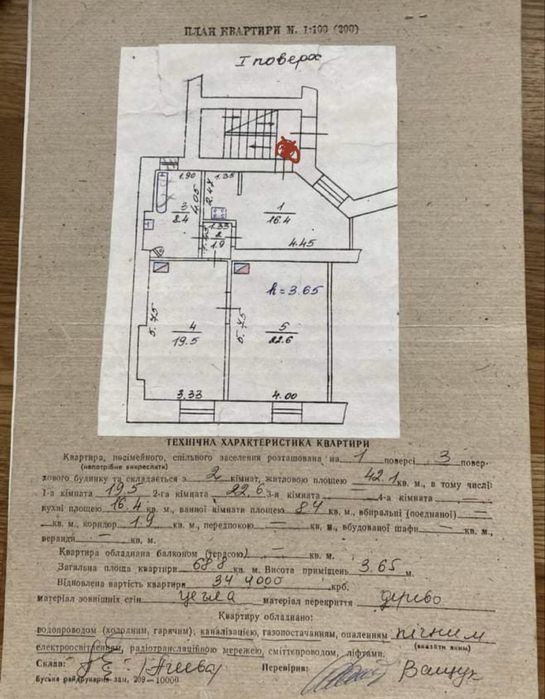 ПЛАН КВАРТИРИ М. 1:100 (200)
І поверх
1.90
1.35
3
8.4
4.05
2.47
1
16.4
1.33
2
1.9
4.45
h = 3.65
5.75
4
19.5
5.75
5
22.6
3.33
4.00
ТЕХНІЧНА ХАРАКТЕРИСТИКА КВАРТИРИ
Квартира, посімейного, спільного заселення розташована на 1 поверсі 3 повер-
(непотрібне викреслити)
хового будинку та складається з 2 кімнат, житловою площею 42.1 кв. м., в тому числі
1-а кімната 19.5 2-га кімната 22.6 3-я кімната — 4-а кімната —
кухні площею 16.4 кв. м., ванної кімнати площею 8.4 кв. м., вбиральні (поєднаної) —
— кв. м., коридор 1.9 кв. м., передпокою — кв. м., вбудованої шафи — кв. м.,
веранди — кв. м.
Квартира обладнана балконом (терасою) — кв. м.
Загальна площа квартири 68.8 кв. м. Висота приміщень 3.65 м.
Відновлена вартість квартири 344000 крб.
матеріал зовнішніх стін цегла матеріал перекриття дерево
Квартиру обладнано:
водопроводом (холодним, гарячим), каналізацією, газопостачанням, опаленням пічним
(вказати яким)
електроосвітленням, радіотрансляційною мережею, сміттєпроводом, ліфтами.
Склав: Перевірив: Ващук
Буська райдрукарня зам. 209—10000